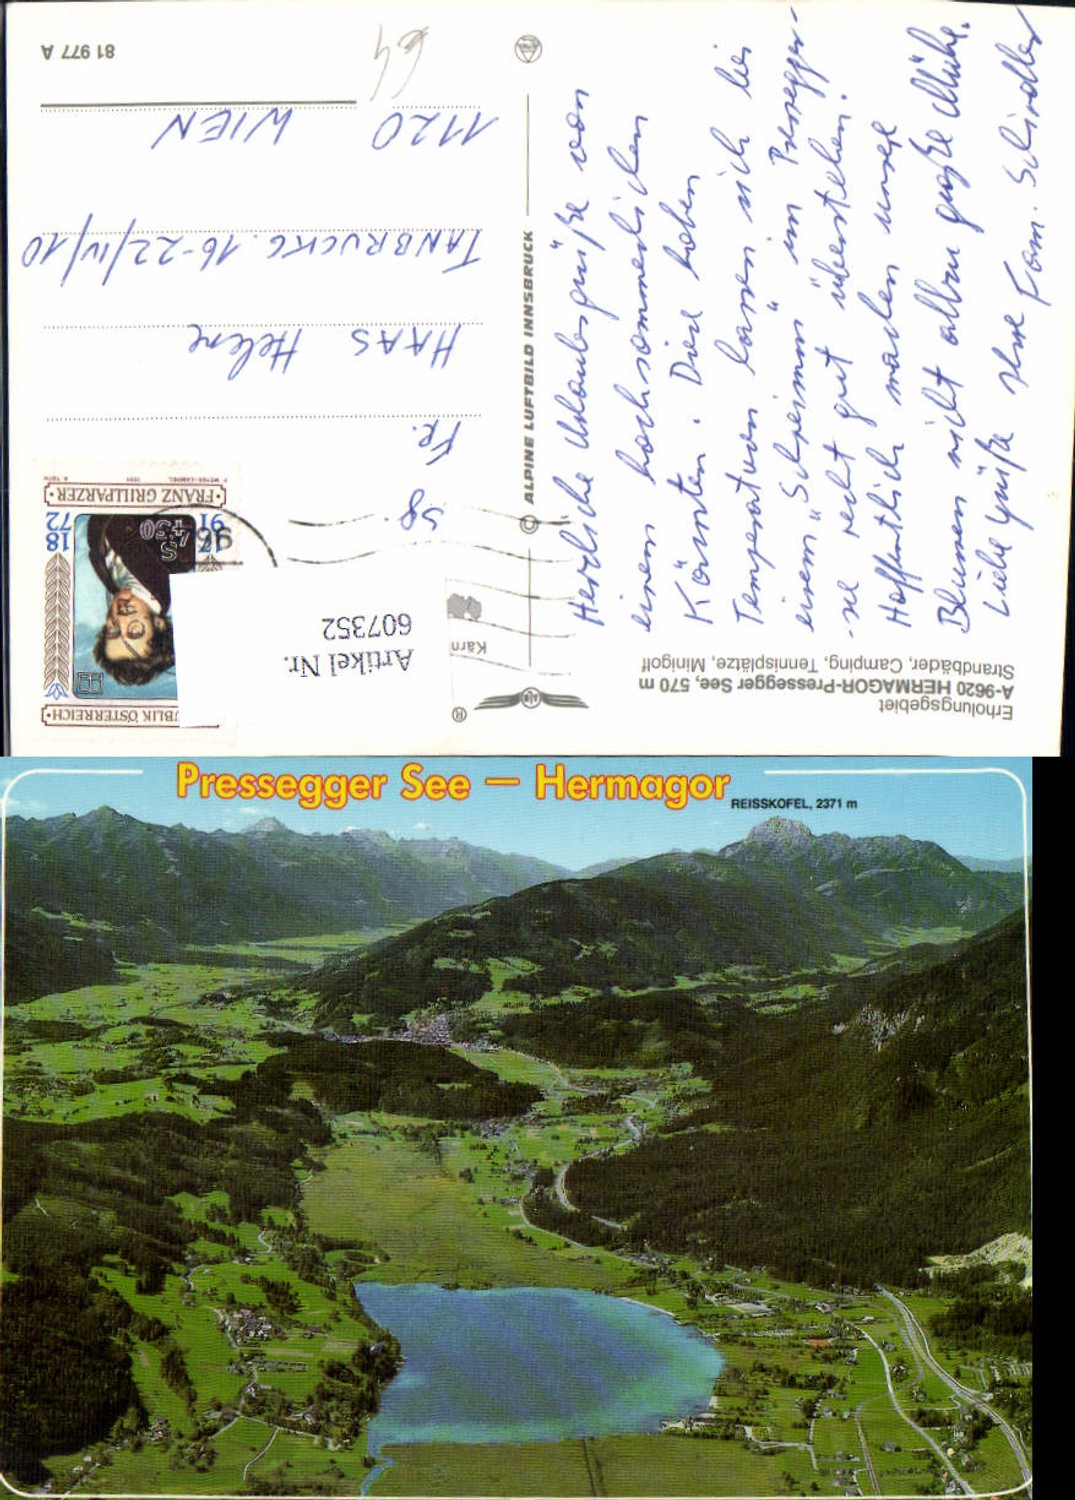 Erholungsgebiet
A-9620 HERMAGOR-Pressegger See, 570 m
Strandbäder, Camping, Tennisplätze, Minigolf
Herzliche Urlaubsgrüße von
einem hochsommerlichen
Kärnten. Diese hohen
Temperaturen lassen sich bei
einem "Schwimm" im Pressegger-
-see recht gut überstehen.
Hoffentlich machen unsere
Blumen nicht allzu große Mühe.
Liebe Grüße Ihre Fam. Schindler
®
Kärn
© ALPINE LUFTBILD INNSBRUCK
REPUBLIK ÖSTERREICH
S 4.50
1791
1872
FRANZ GRILLPARZER
Artikel Nr.
607352
Sg.
Fr.
HAAS Helene
TANBRUCKG. 16-22/IV/10
1120 WIEN
64
81 977 A
Pressegger See – Hermagor
REISSKOFEL, 2371 m